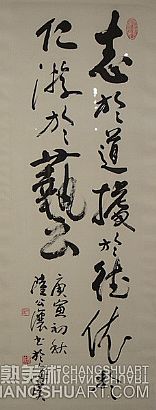 志於道據於德依於
仁游於藝
庚寅初秋
陸公讓書於
熟美术
CHANGSHUART